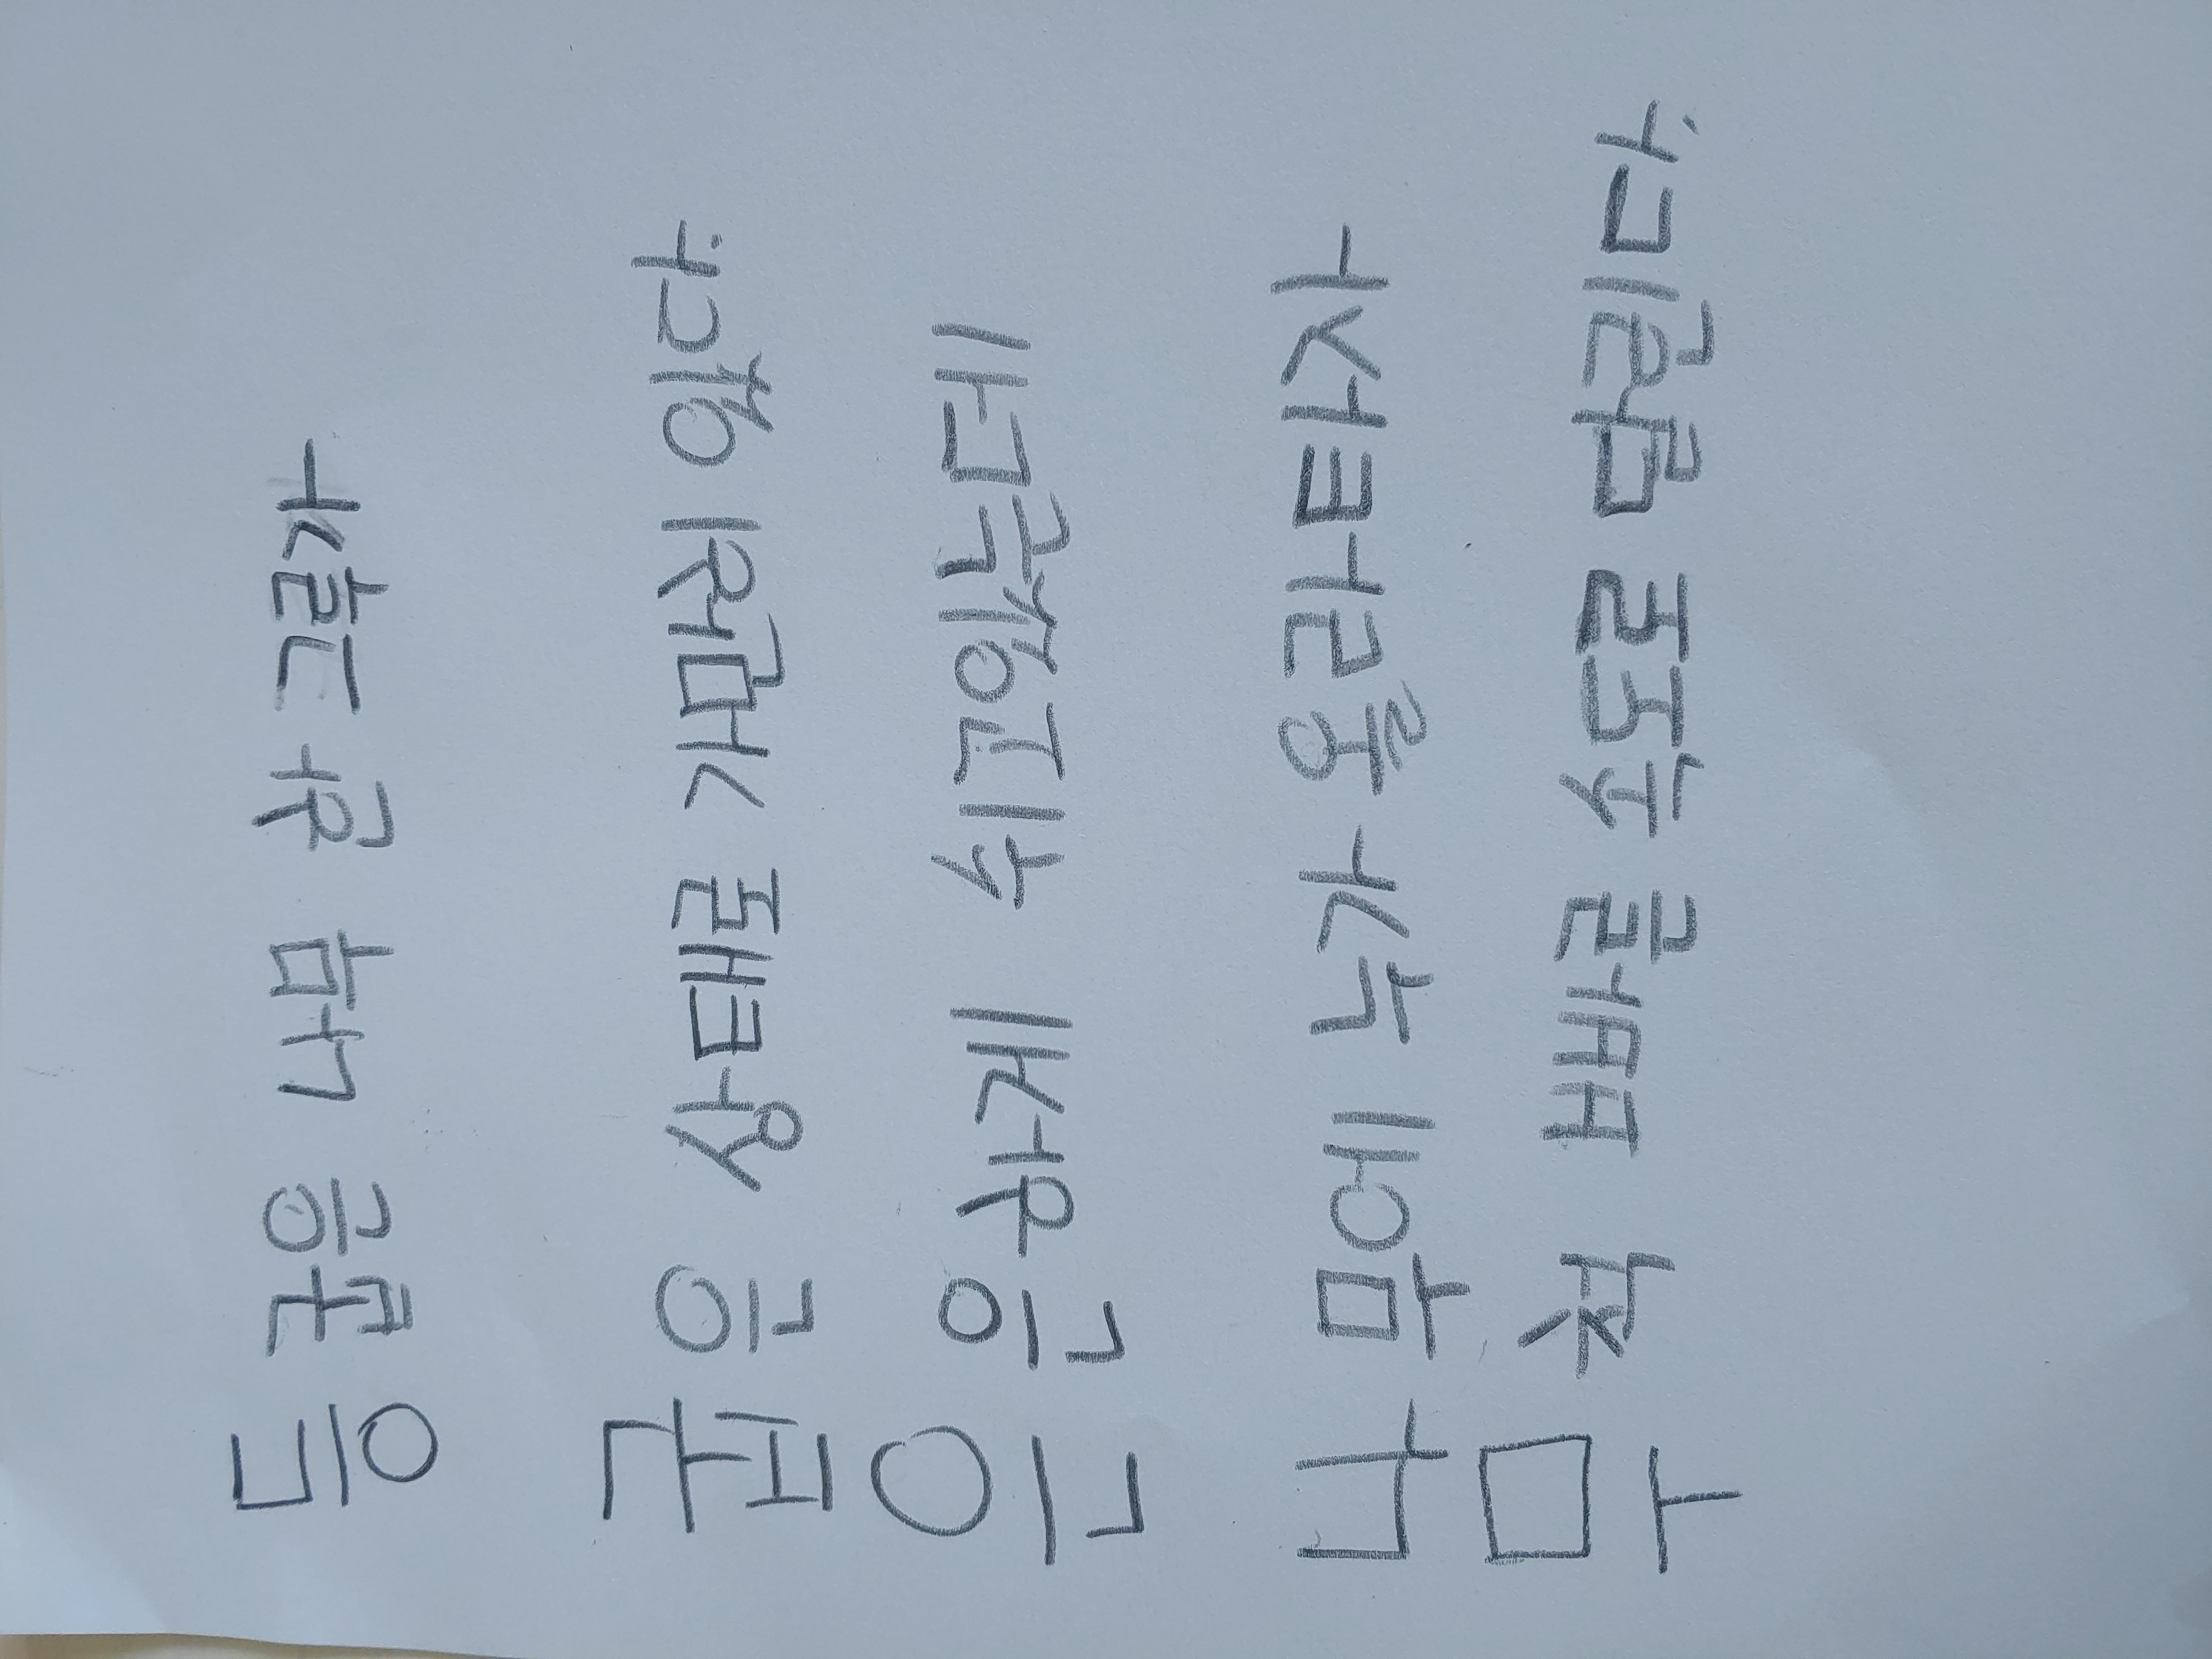 등 굽은 나무 한 그루가
굽은 상태로 가만히 있다.
은은하게 쉬고있는데
나무에 누가 올라타자
무척 빠른 속도로 달린다.